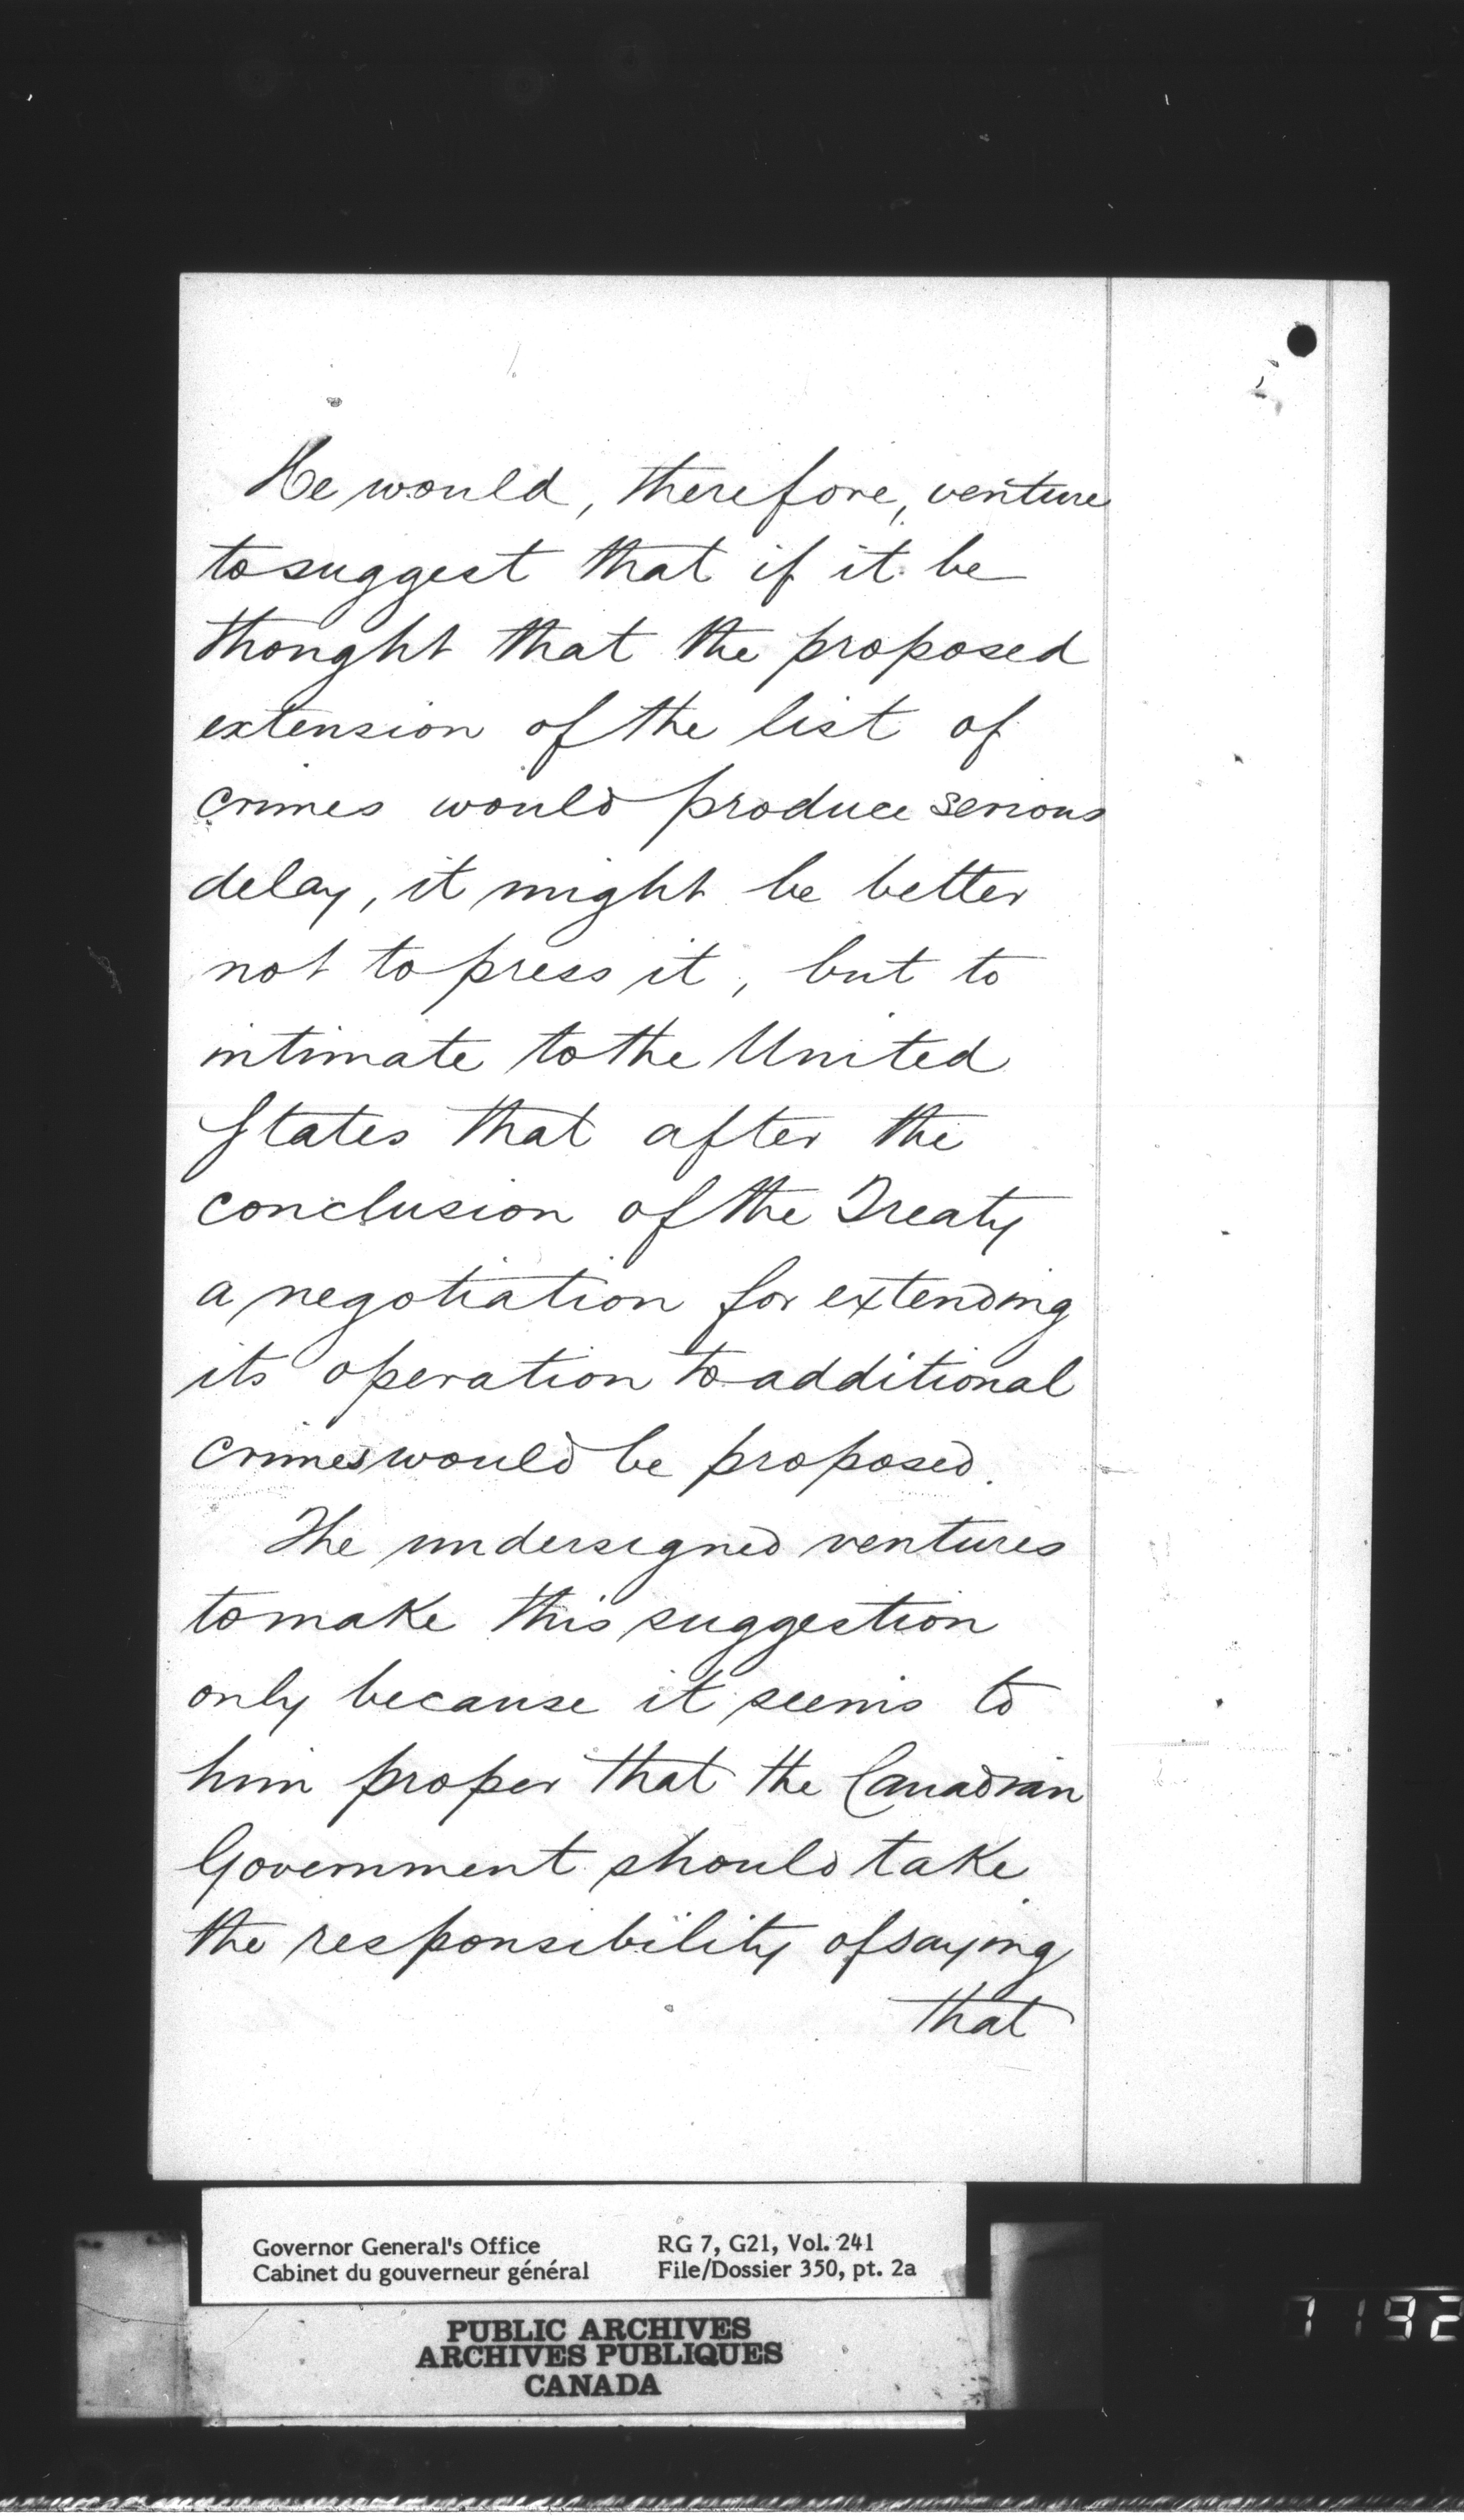 He would, therefore, venture
to suggest that if it be
thought that the proposed
extension of the list of
crimes would produce serious
delay, it might be better
not to press it, but to
intimate to the United
States that after the
conclusion of the Treaty
a negotiation for extending
its operation to additional
crimes would be proposed.
The undersigned ventures
to make this suggestion
only because it seems to
him proper that the Canadian
Government should take
the responsibility of saying
that
Governor General's Office
Cabinet du gouverneur général
RG 7, G21, Vol. 241
File/Dossier 350, pt. 2a
PUBLIC ARCHIVES
ARCHIVES PUBLIQUES
CANADA
1192